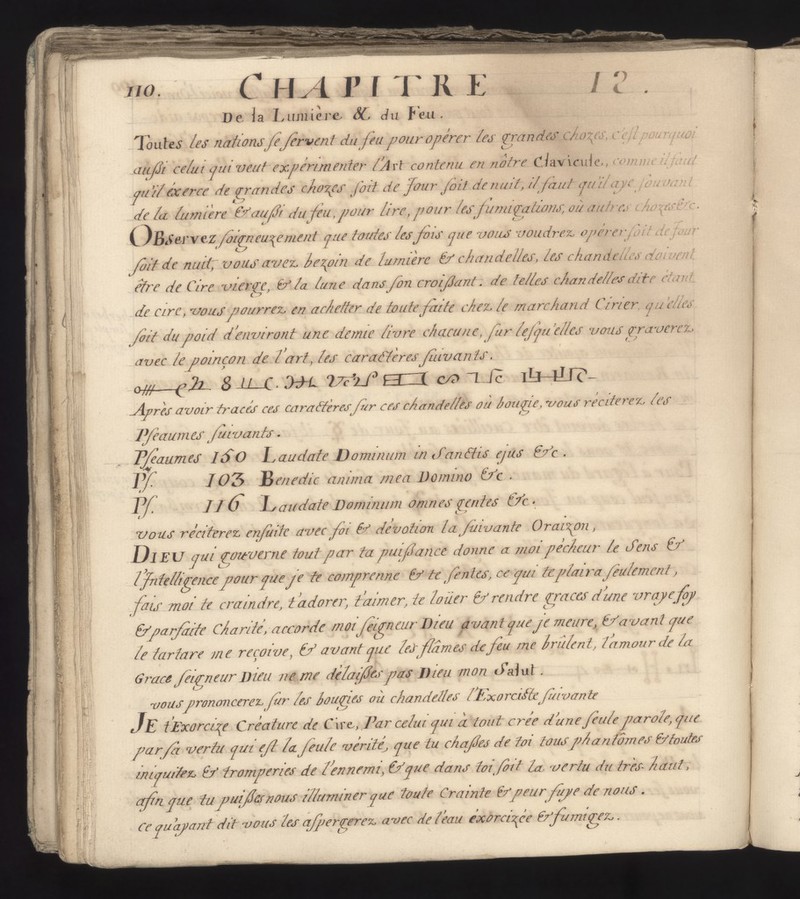 110. CHAPITRE 12.
De la Lumière & du Feu.
Toutes les nations se servent du feu pour opérer les grandes chozes, c'est pourquoi
aussi celui qui veut expérimenter l'Art contenu en nôtre Clavicule, comme il faut
qu'il éxerce de grandes chozes soit de Jour soit de nuit, il faut qu'il aye souvant
de la lumière & aussi du feu, pour lire, pour les fumigations, où autres chozes &c.
OBservez soigneuzement que toutes les fois que vous voudrez opérer soit de Jour
soit de nuit, vous avez bezoin de lumière & chandelles, les chandelles doivent
être de Cire vierge, & la lune dans son croissant. de telles chandelles dite étant
de cire, vous pourrez en achetter de toute faite chez le marchand Cirier, qu'elles
soit du poid d'environt une demie livre chacune, sur lesqu'elles vous graverez
avec le poinçon de l'art, les caractères suivants.
Après avoir tracés ces caractères sur ces chandelles où bougie, vous réciterez les
Pseaumes suivants.
Pseaumes 150 Laudate Dominum in Sanctis ejus &c.
Ps. 103 Benedic anima mea Domino &c.
Ps. 116 Laudate Dominum omnes gentes &c.
vous réciterez ensuite avec foi & dévotion la suivante Oraizon,
DIEU qui gouverne tout par ta puissance donne a moi pécheur le Sens &
l'Intelligence pour que je te comprenne & te sentes, ce qui te plaira seulement,
fais moi te craindre, t'adorer, t'aimer, te loüer & rendre graces d'une vraye foy
& parfaite Charité, accorde moi seigneur Dieu avant que je meure, & avant que
le tartare me reçoive, & avant que les flâmes de feu me brûlent, l'amour de la
Grace seigneur Dieu ne me délaisses pas Dieu mon Salut.
vous prononcerez sur les bougies où chandelles l'Exorciste suivante
JE t'Exorcize Créature de Cire, Par celui qui à tout crée d'une seule parole, que
par sa vertu qui est la seule vérité, que tu chasses de toi tous phantômes & toutes
iniquitez & tromperies de l'ennemi, & que dans toi soit la vertu du très haut,
afin que tu puisses nous illuminer que toute Crainte & peur fuye de nous.
Ce qu'ayant dit vous les aspergerez avec de l'eau éxorcizée & fumigez.